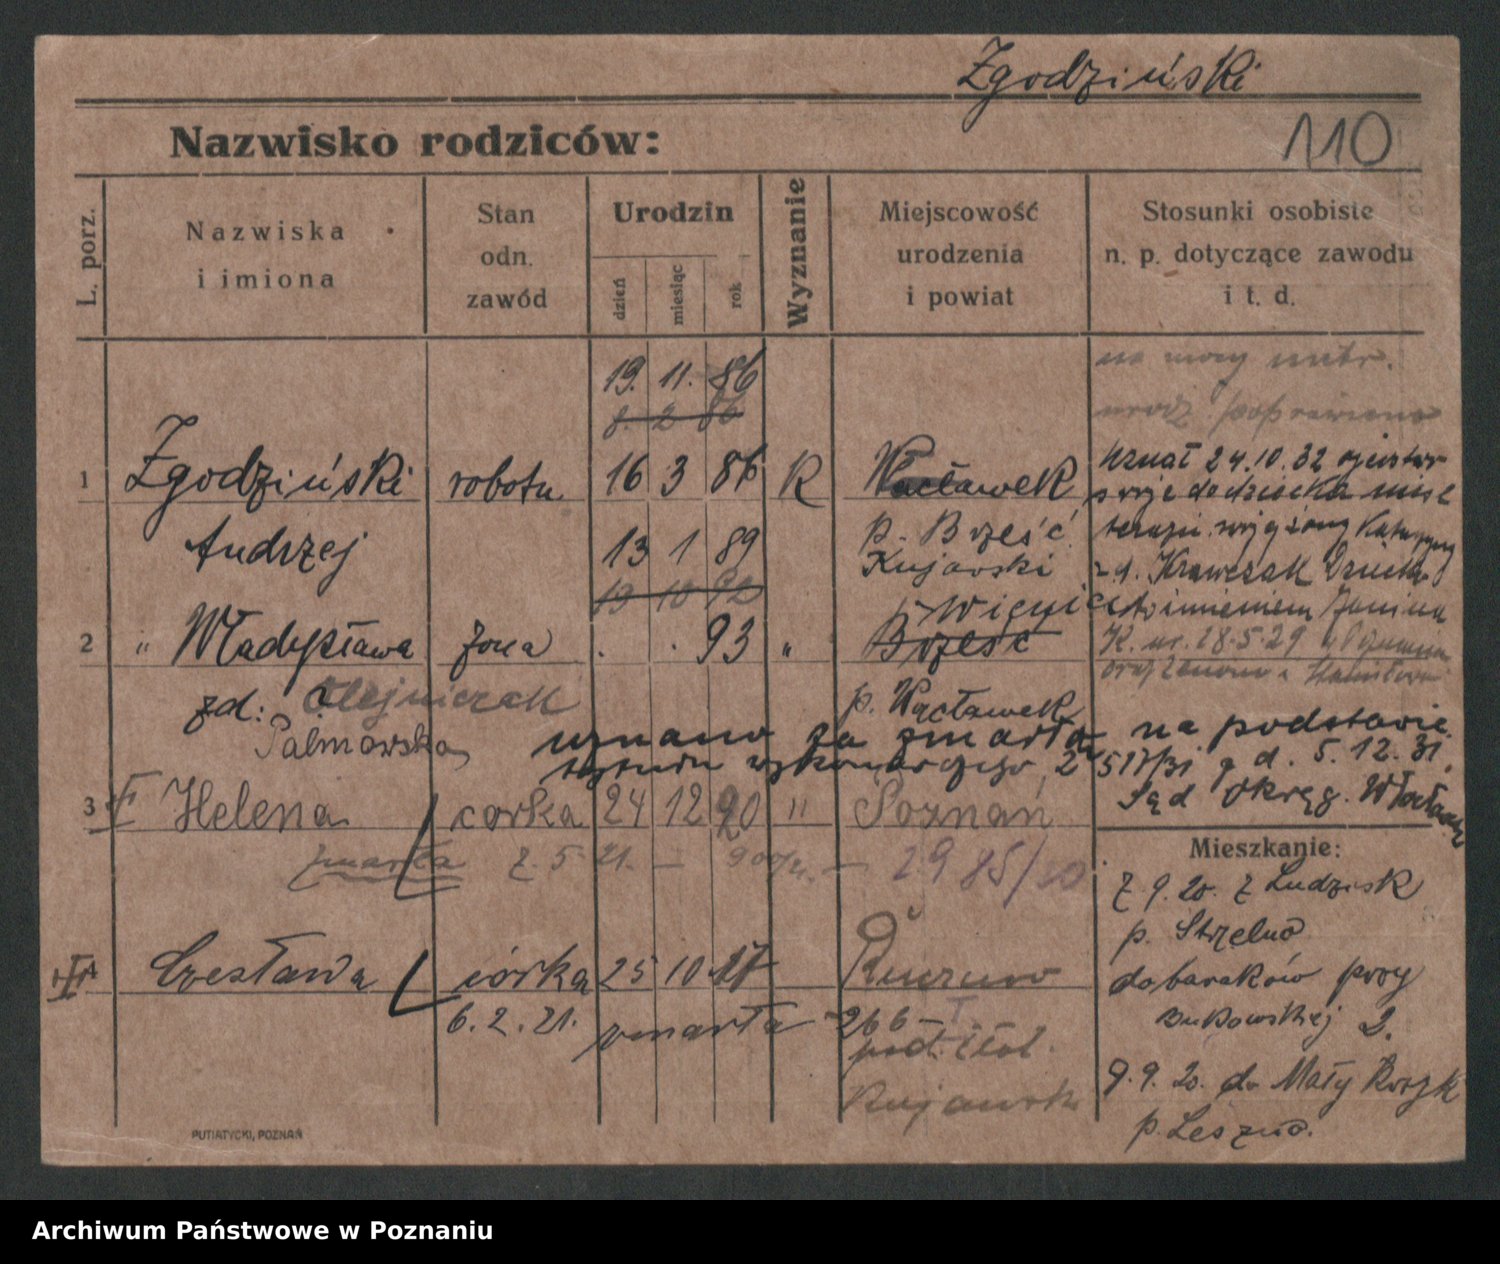 Zgodziński
Nazwisko rodziców:
110
L. porz.
Nazwiska
i imiona
Stan
odn.
zawód
Urodzin
dzień
miesiąc
rok
Wyznanie
Miejscowość
urodzenia
i powiat
Stosunki osobiste
n. p. dotyczące zawodu
i t. d.
19. 11. 86
8. 2 86
na mocy metr.
urodz. poprawiono
1 Zgodziński robotn 16 3 86 K Wacławek
Andrzej 13 1 89 p. Brześć
Kujawski
13 10 92
uznał 24.10.32 ojcostwo
swoje do dziecka
Katarzyny
Krawczak
imieniem Janina
2 " Władysława żona . . 93 " Brześć
K. ur. 18.5.29
zd: Olejniczak p. Wacławek
Palmowska
uznano za zmarłą na podstawie
wykonawczego 2 517/31 d. 5.12.31.
Sąd Okręg.
3 II Helena córka 24 12 20 " Poznań
zmarła 2.5.21. — 2985/20
4 III Czesława córka 25 10 17
6.2.21. zmarła 266 — I.
Kujawsk
Mieszkanie:
7.9.20. z Ludzisk
p. Strzelno
do baraków przy
Bukowskiej 2.
9.9.20. do Mały
p. Leszno.
PUTIATYCKI, POZNAŃ
Archiwum Państwowe w Poznaniu